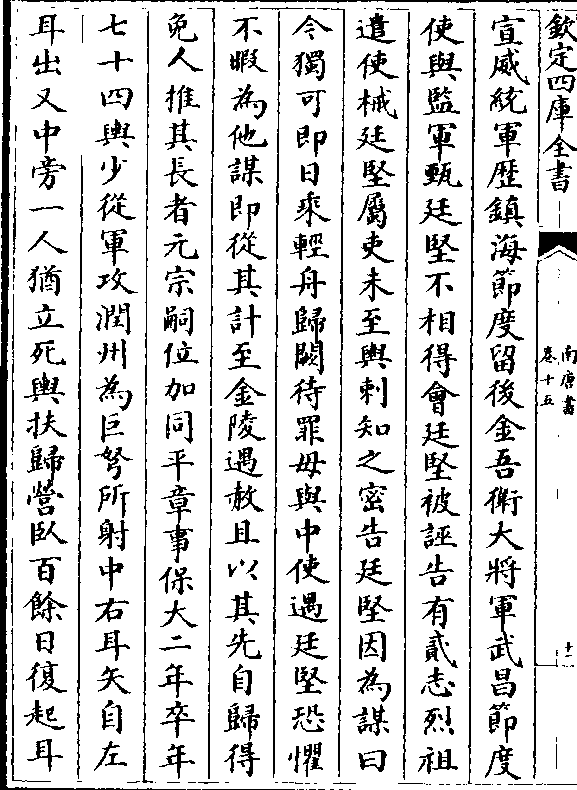 欽定四庫全書
南唐書
卷十五
十一
宣威統軍歴鎮海節度留後金吾衛大將軍武昌節度
使與監軍甄廷堅不相得㑹廷堅被誣告有貳志烈祖
遣使械廷堅屬吏未至輿刺知之密告廷堅因為謀曰
今獨可即日乗輕舟歸闕待罪毋與中使遇廷堅恐懼
不暇為他謀即從其計至金陵遇赦且以其先自歸得
免人推其長者元宗嗣位加同平章事保大二年卒年
七十四輿少從軍攻潤州為巨弩所射中右耳矢自左
耳出又中旁一人猶立死輿扶歸營臥百餘日復起耳